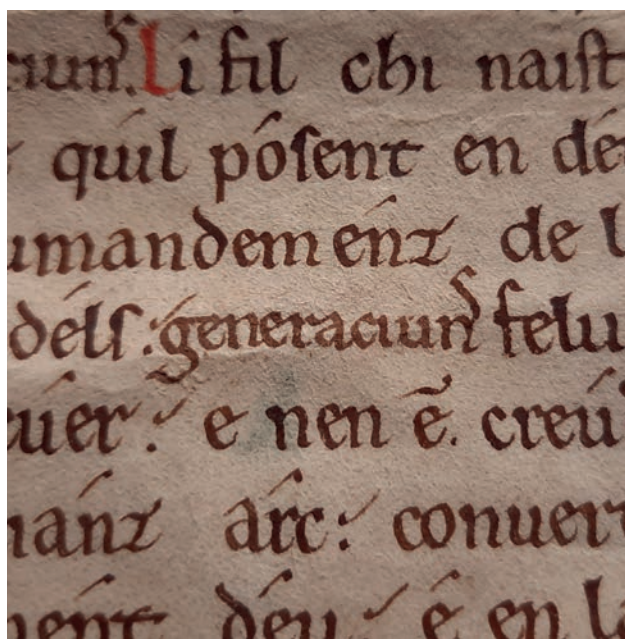 ciunˢ. Li fil chi naist
quil pósent en dé
umandemenz de l
déls : generaciunˢ felu
cuér : e nen ē. creú
nánz árc : conuer
ment déu : e en l